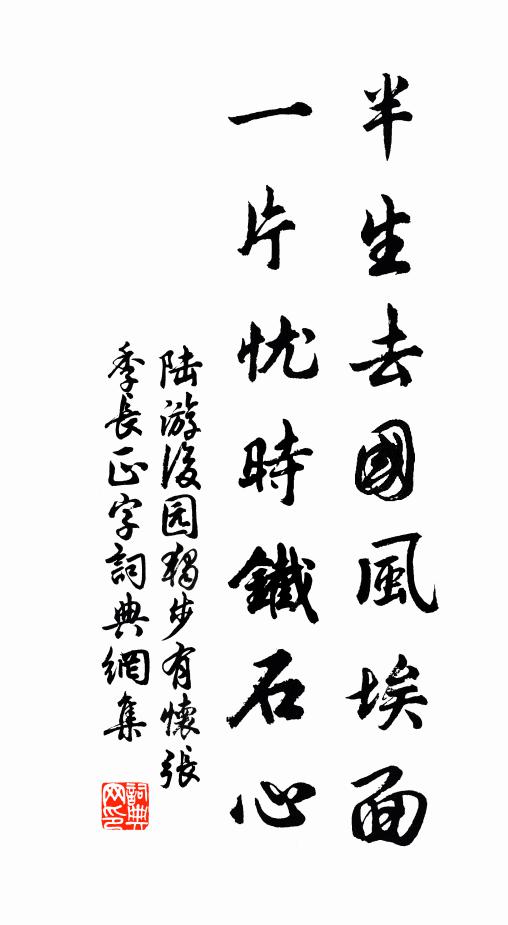 半生去國風埃面
一片忧時鐵石心
陆游後园獨步有懷張
季長正字詞典網集
詞典网印